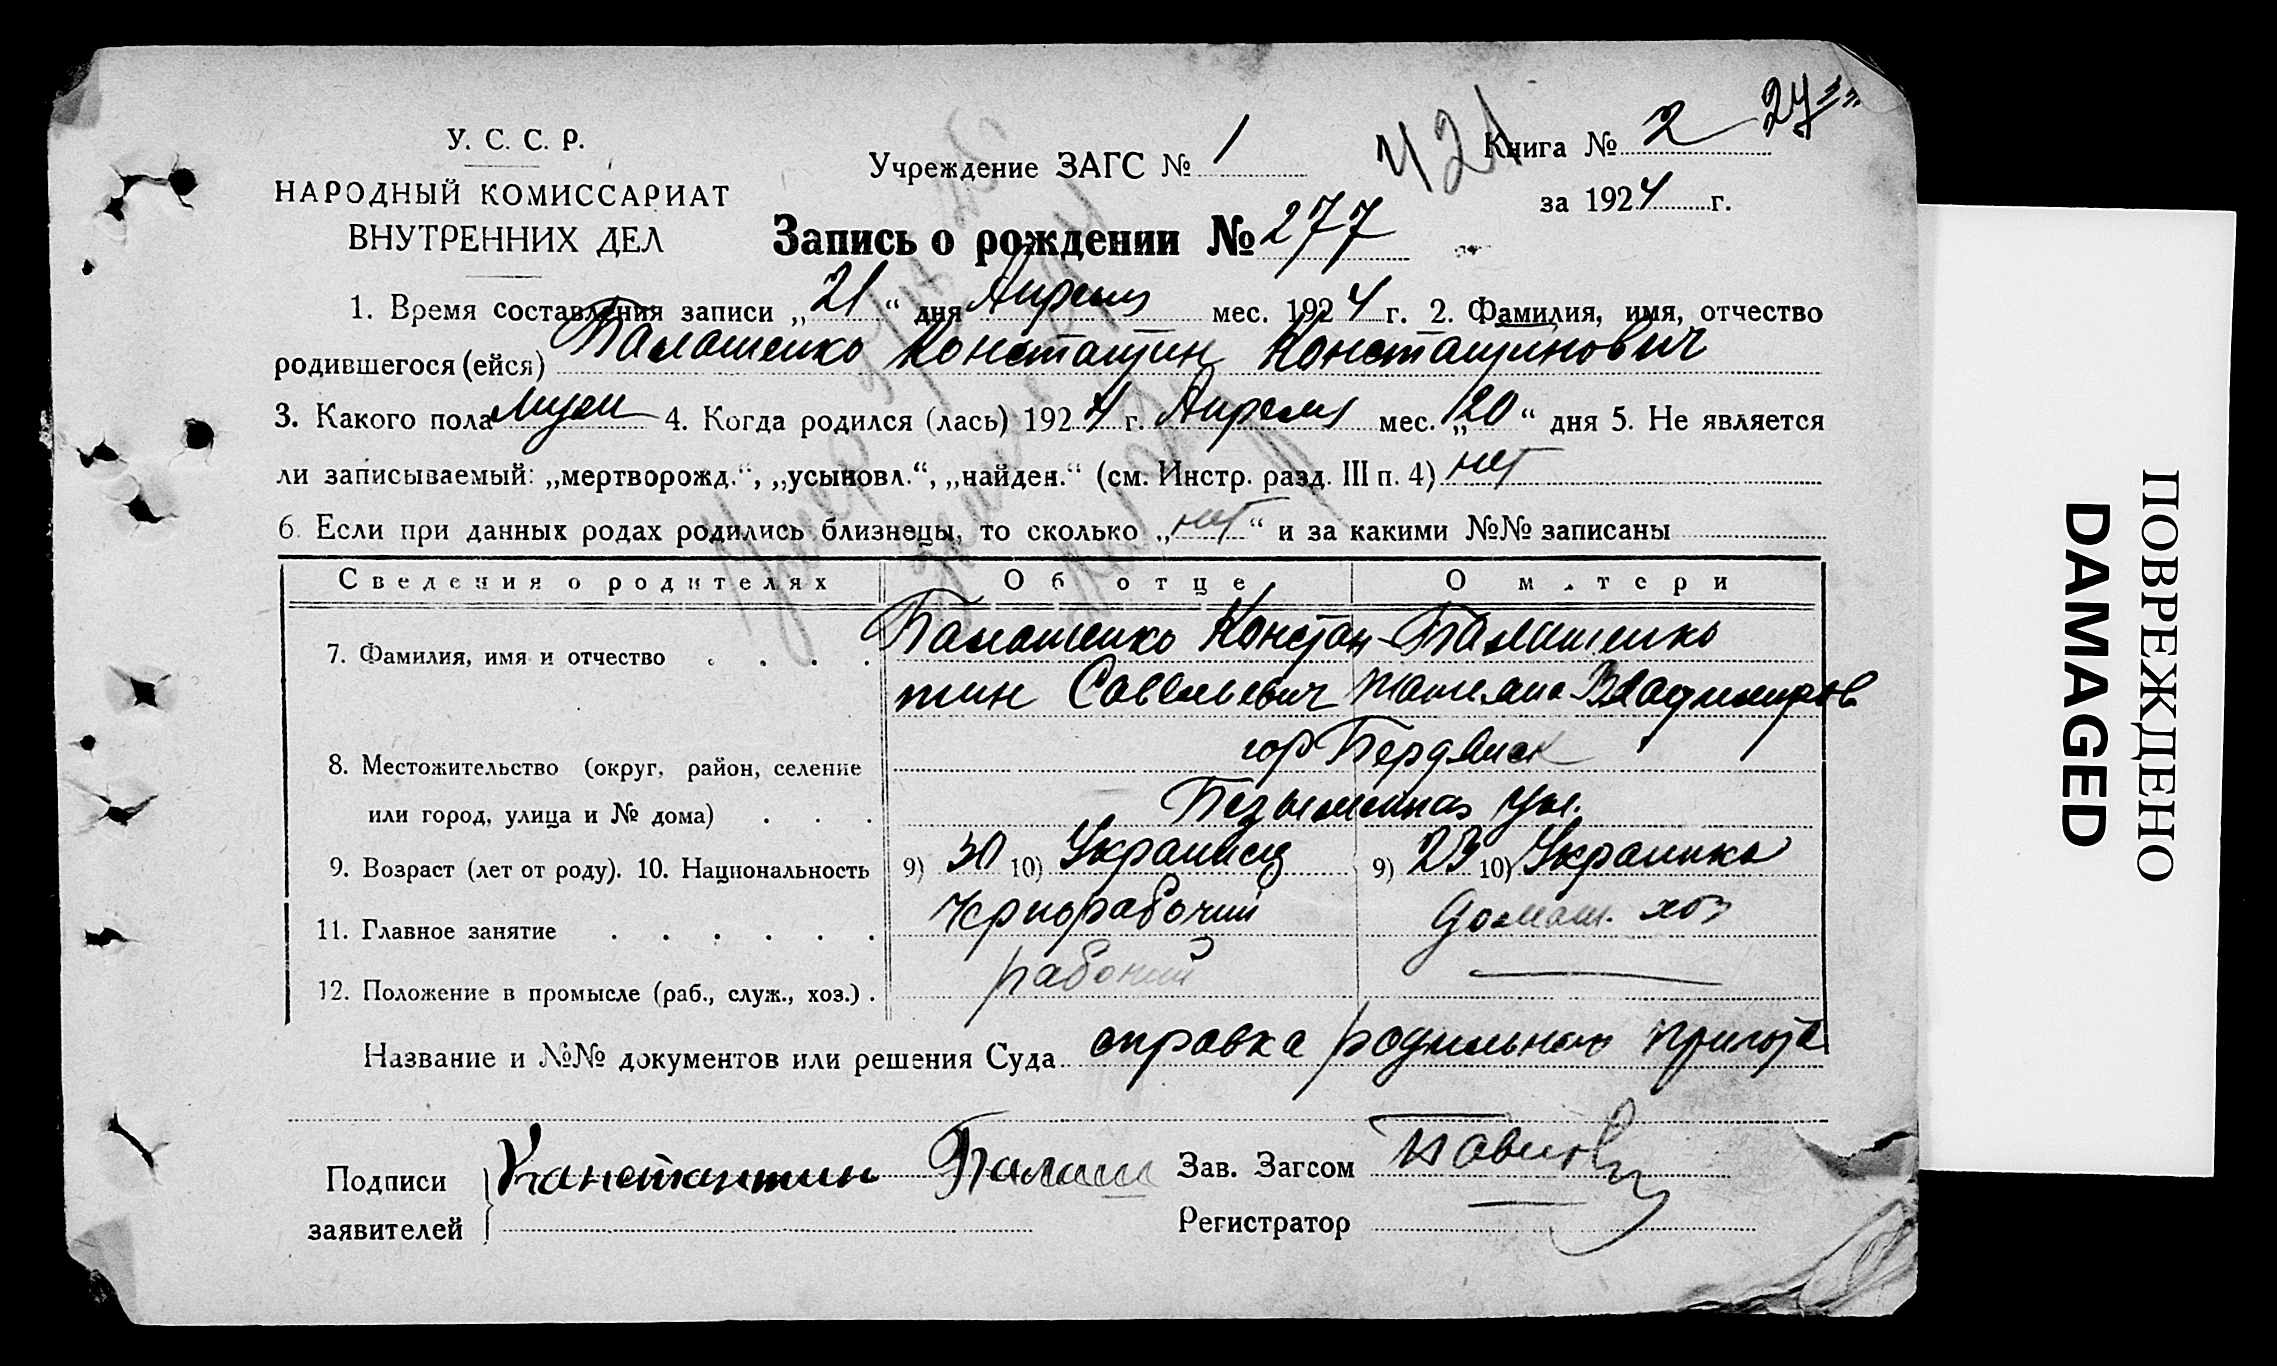 У. С. С. Р.
НАРОДНЫЙ КОМИССАРИАТ
ВНУТРЕННИХ ДЕЛ
Учреждение ЗАГС № 1
421
Книга № 2
за 1924 г.
Запись о рождении № 277
1. Время составления записи „21“ дня Апреля мес. 1924 г. 2. Фамилия, имя, отчество
родившегося (ейся) Балашенко Константин Константинович
3. Какого пола Муж 4. Когда родился (лась) 1924 г. Апреля мес. „20“ дня 5. Не является
ли записываемый: „мертворожд.“, „усыновл.“, „найден.“ (см. Инстр. разд. III п. 4) нет
6. Если при данных родах родились близнецы, то сколько „нет“ и за какими №№ записаны
Сведения о родителях Об отце О м.тери
7. Фамилия, имя и отчество Балашенко Констан Балашенко
тин Савельевич Татьяна Владимиров
8. Местожительство (округ, район, селение гор Бердянск
или город, улица и № дома) Безыменная ул.
9. Возраст (лет от роду). 10. Национальность 9) 30 10) Украинец 9) 23 10) Украинка
11. Главное занятие Чернорабочий домаш. хоз
12. Положение в промысле (раб., служ., хоз.) рабочий
Название и №№ документов или решения Суда справка родильного приюта
Подписи
заявителей
Канстантин Балаш
Зав. Загсом
Регистратор
ПОВРЕЖДЕНО
DAMAGED